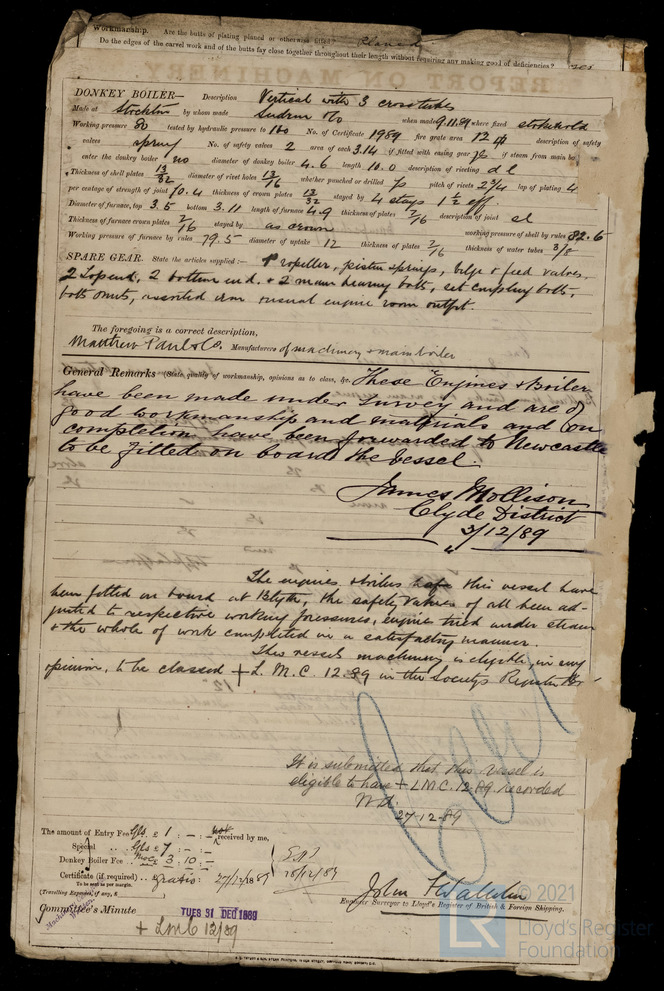 Workmanship. Are the butts of plating planed or otherwise fitted? Planed
Do the edges of the carvel work and of the butts fay close together throughout their length without requiring any making good of deficiencies? yes
DONKEY BOILER— Description Vertical with 3 cross tubes
Made at Stockton by whom made when made 9.11.89 where fixed stokehold
Working pressure 80 tested by hydraulic pressure to 160 No. of Certificate 1989 fire grate area 12 description of safety
valves spring No. of safety valves 2 area of each 3.14 if fitted with easing gear if steam from main boilers can
enter the donkey boiler no diameter of donkey boiler 4.6 length 10.0 description of riveting d l
Thickness of shell plates 13/32 diameter of rivet holes 13/16 whether punched or drilled pitch of rivets 2 3/4 lap of plating 4
per centage of strength of joint 70.4 thickness of crown plates 13/32 stayed by 4 stays 1 1/2 eff.
Diameter of furnace, top 3.5 bottom 3.11 length of furnace 4.9 thickness of plates 7/16 description of joint sl
Thickness of furnace crown plates 7/16 stayed by as crown working pressure of shell by rules 82.6
Working pressure of furnace by rules 79.5 diameter of uptake 12 thickness of plates 7/16 thickness of water tubes 3/8
SPARE GEAR. State the articles supplied:— 1 Propeller, piston springs, bilge & feed valves,
2 top end, 2 bottom end, & 2 main bearing bolts, set coupling bolts,
bolts & nuts, assorted iron & usual engine room outfit.
The foregoing is a correct description,
Matthew Paul & Co. Manufacturers of machinery & main boiler
General Remarks (State quality of workmanship, opinions as to class, &c. These Engines & Boiler
have been made under survey and are of
good workmanship and materials and on
completion have been forwarded to Newcastle
to be fitted on board the vessel.
James Mollison
Clyde District
3/12/89
The engines & boilers of this vessel have
been fitted on board at Blyth, the safety valves of all been ad-
justed to respective working pressures, engines tried under steam
& the whole of work completed in a satisfactory manner.
This vessels machinery is eligible in my
opinion, to be classed + L.M.C. 12.89 in the Society's Register Book
It is submitted that this vessel is
eligible to have + LMC. 12.89 recorded
27.12.89
The amount of Entry Fee £ 1 : – : – received by me,
Special .. £ 7 : – : –
Donkey Boiler Fee .. 3 : 10 : –
Certificate (if required) .. gratis : 27/12/1889
28/12/89
To be sent as per margin.
(Travelling Expenses, if any, £
Committee's Minute
TUES 31 DEC 1889
+ LMC 12/89
John
Engineer Surveyor to Lloyd's Register of British & Foreign Shipping.
© 2021
LR
Lloyd's Register
Foundation